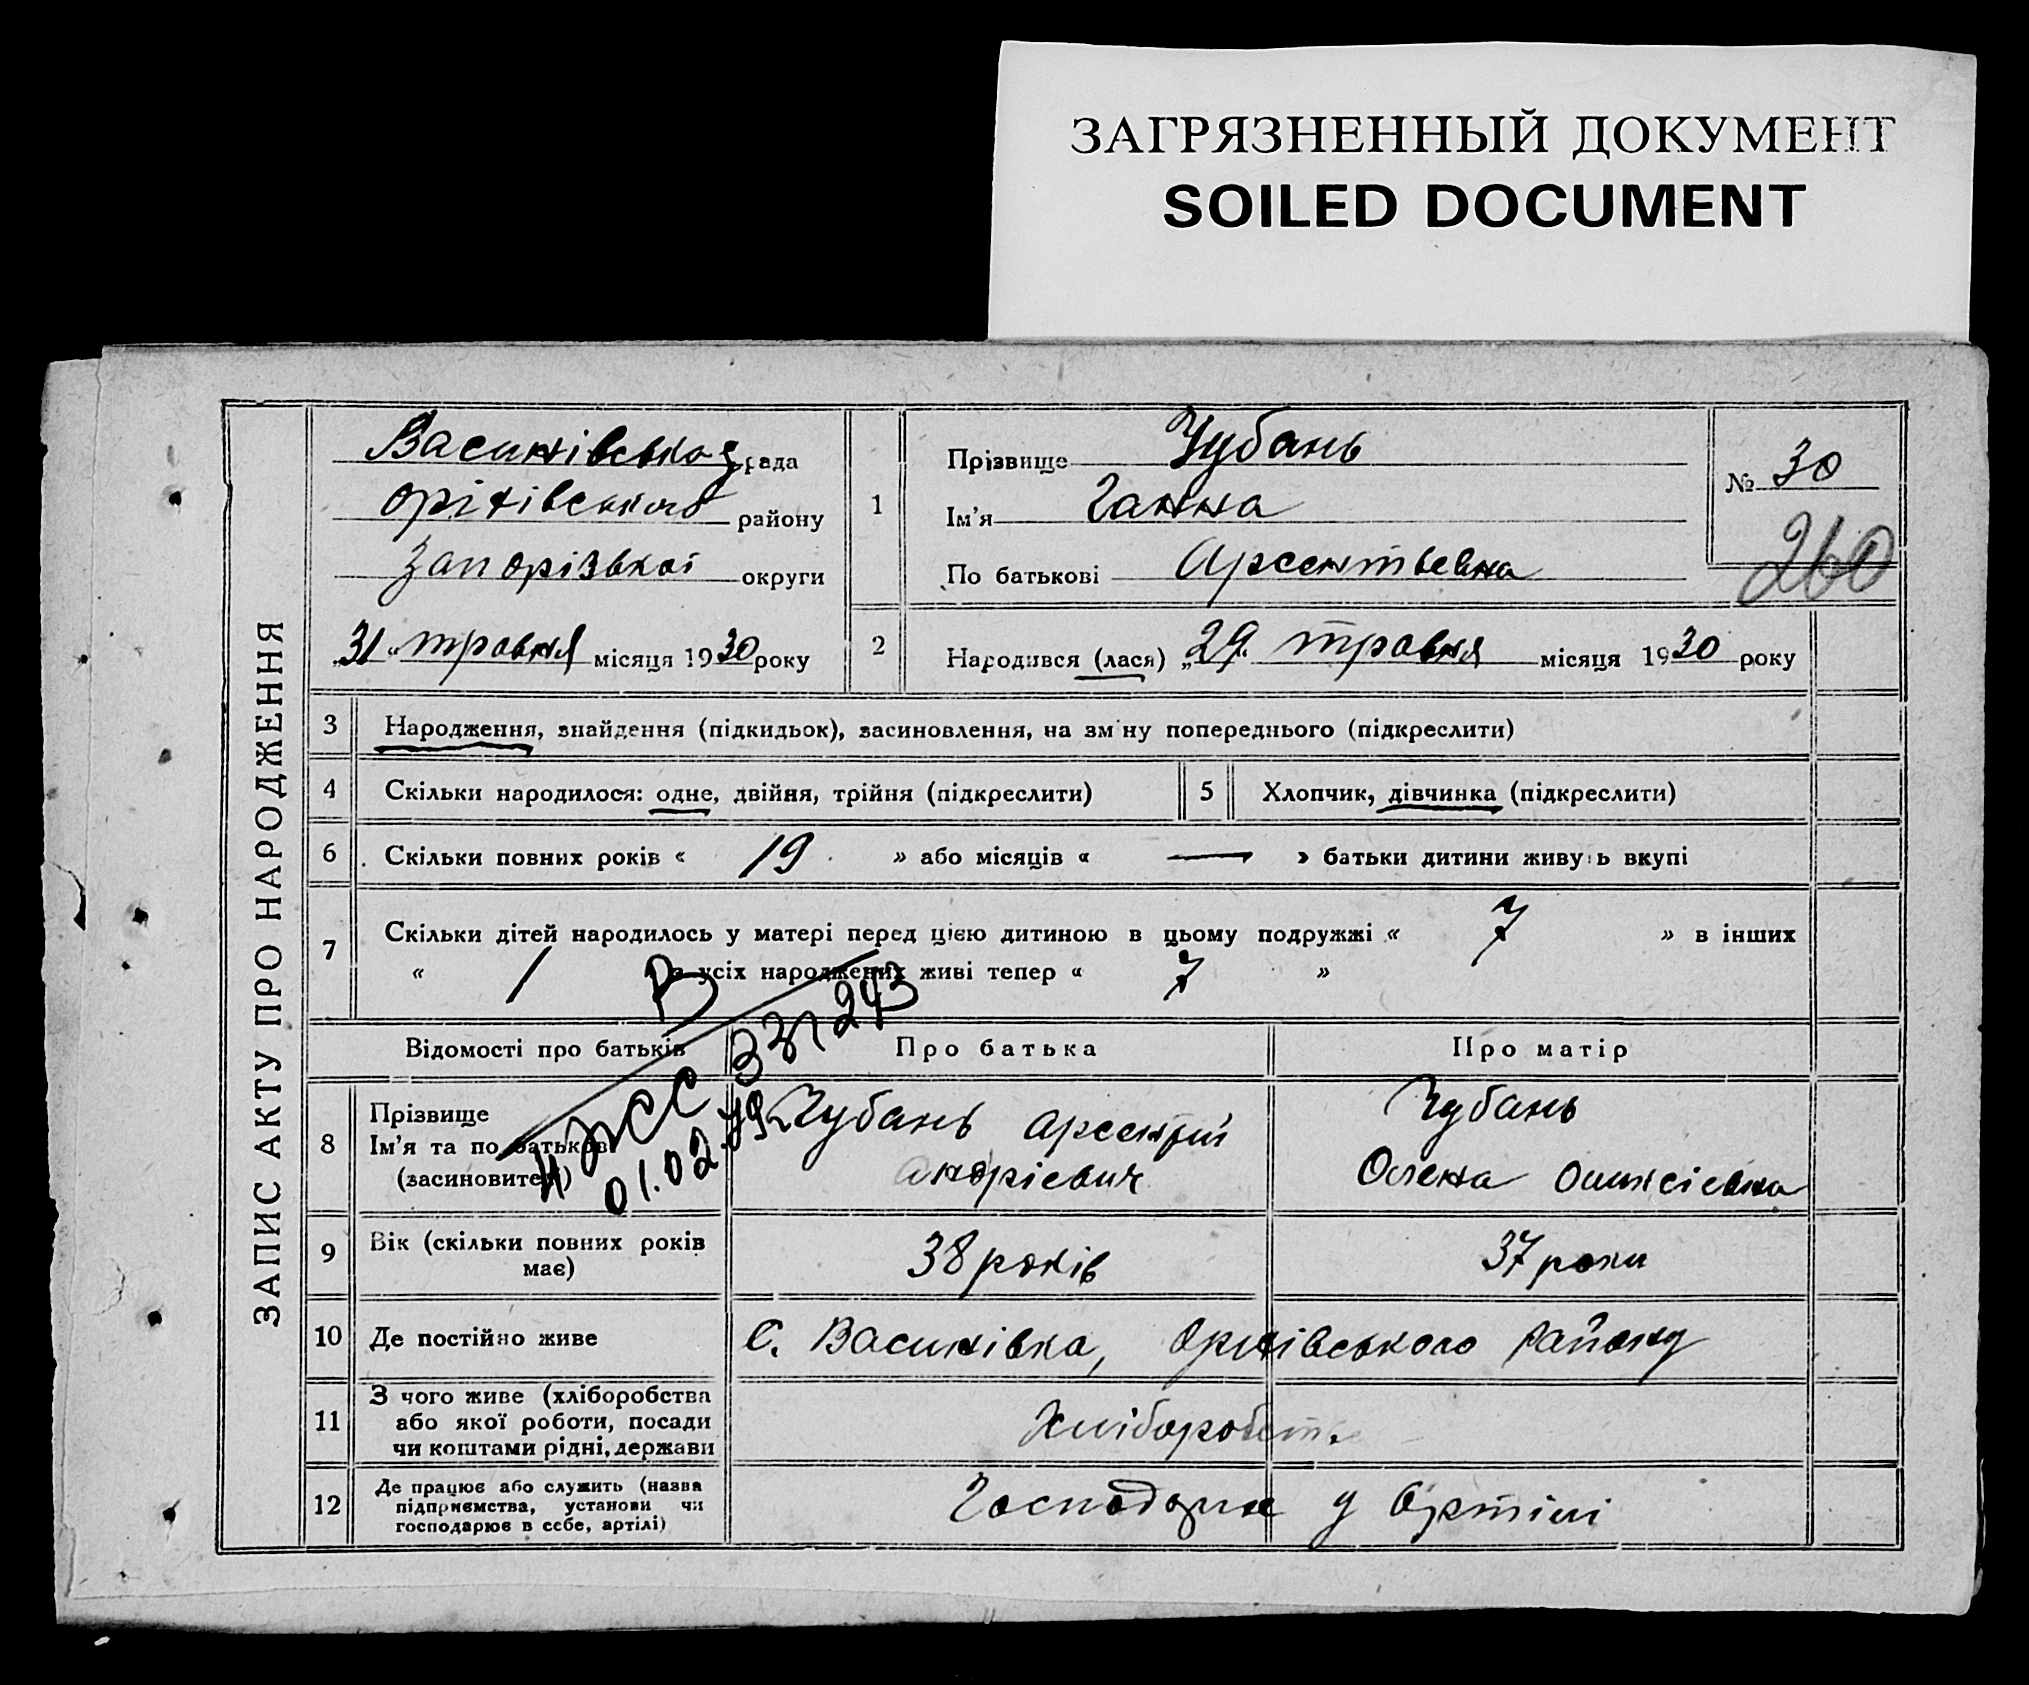 ЗАГРЯЗНЕННЫЙ ДОКУМЕНТ
SOILED DOCUMENT
ЗАПИС АКТУ ПРО НАРОДЖЕННЯ
Василівська рада
Оріхівського району
Запорізької округи
„31“ травня місяця 1930 року
1
Прізвище Чубань
Ім'я Ганна
По батькові Арсентьевна
№ 30
260
2 Народився (лася) „29“ травня місяця 1930 року
3 Народження, знайдення (підкидьок), засиновлення, на зміну попереднього (підкреслити)
4 Скільки народилося: одне, двійня, трійня (підкреслити)
5 Хлопчик, дівчинка (підкреслити)
6 Скільки повних років « 19 » або місяців « — » батьки дитини живуть вкупі
7 Скільки дітей народилось у матері перед цією дитиною в цьому подружжі « 7 » в інших
« 1 з усіх народжених живі тепер « 7 »
Відомості про батьків
Про батька
Про матір
8 Прізвище
Ім'я та по батькові
(засиновителі)
01.02.
Чубань Арсентій
Андрієвич
Чубань
Олена
9 Вік (скільки повних років
має)
38 років
37 роки
10 Де постійно живе
С. Василівка, Оріхівського району
11 З чого живе (хліборобства
або якої роботи, посади
чи коштами рідні, держави
Хлібороб
12 Де працює або служить (назва
підприємства, установи чи
господарює в себе, артілі)
у Артілі